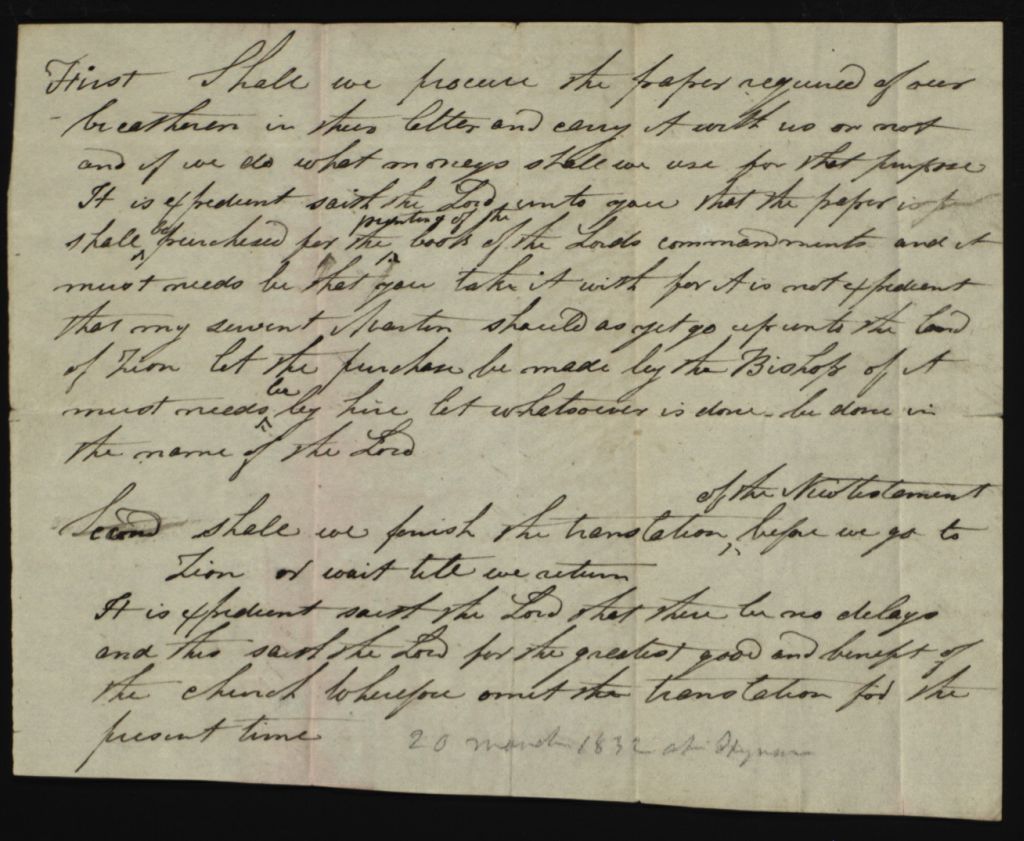 First Shall we procure the paper required of our
breatheren in thier letter and cary it with us or not
and if we do what moneys shall we use for that purpose
It is expedient saith the Lord unto you that the paper
printing of the
shall be purchased for the book of the Lords commandments and it
must needs be that you take it with for it is not expedient
that my servent Martin should as yet go up unto the land
of Zion let the purchase be made by the Bishop of it
be
must needs by hire let whatsoever is done be done in
the name of the Lord
of the New testament
Second shall we finish the translation before we go to
Zion or wait till we return
It is expedient saith the Lord that there be no delays
and this saith the Lord for the greatest good and benefit of
the church Wherefore omit the translation for the
present time
20 march 1832